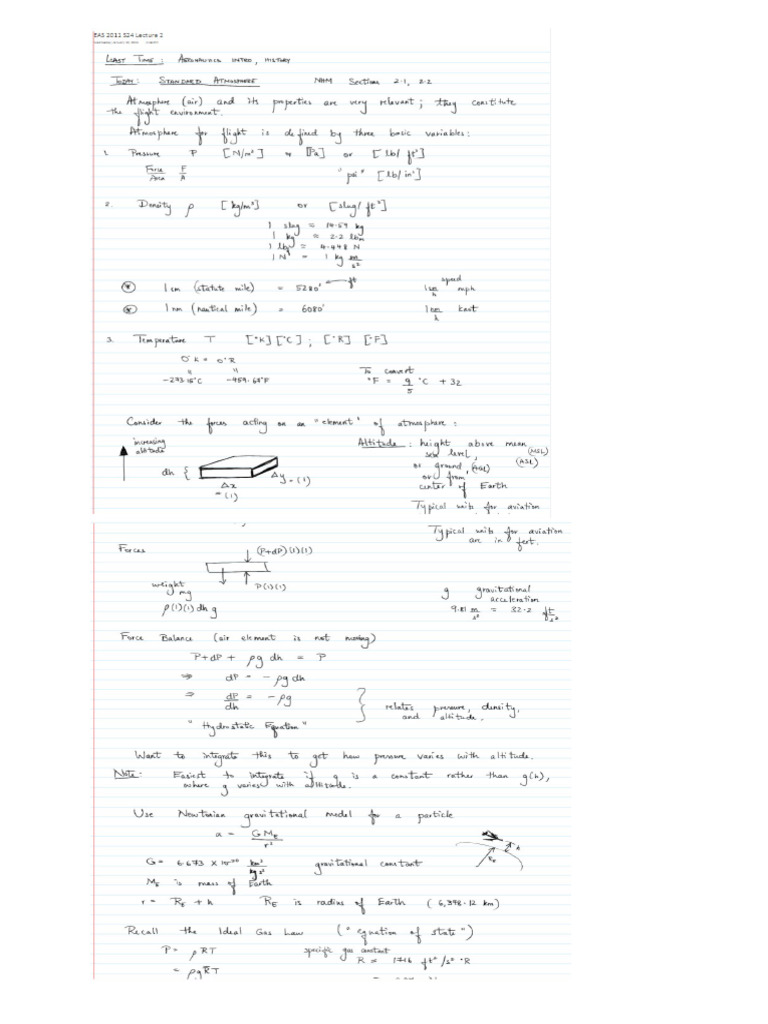 EAS 2011 S24 Lecture 2
LAST TIME: AERONAUTICS INTRO, HISTORY
TODAY: STANDARD ATMOSPHERE NHM Sections 2.1, 2.2
Atmosphere (air) and its properties are very relevant; they constitute
the flight environment.
Atmosphere for flight is defined by three basic variables:
1. Pressure P [N/m²] or [Pa] or [lb/ft²]
Force F "psi" [lb/in²]
Area A
2. Density ρ [kg/m³] or [slug/ft³]
1 slug = 14.59 kg
1 kg = 2.2 lbm
1 lbf = 4.448 N
1 N = 1 kg m/s²
ft
speed
1 sm (statute mile) = 5280' 1 sm/h mph
1 nm (nautical mile) = 6080' 1 nm/h knot
3. Temperature T [°K] [°C] ; [°R] [°F]
0°K = 0°R
" "
-273.15°C -459.69°F
To convert
°F = 9/5 °C + 32
Consider the forces acting on an "element" of atmosphere:
increasing
altitude
dh {
Δx
= (1)
Δy = (1)
Altitude: height above mean
sea level, (MSL)
(ASL)
or ground, (AGL)
or from
center of Earth
Typical units for aviation
Typical units for aviation
are in feet.
Forces
(P+dP)(1)(1)
weight
mg
P(1)(1)
ρ(1)(1)dh g
g gravitational
acceleration
9.81 m/s² = 32.2 ft/s²
Force Balance (air element is not moving)
P+dP + ρg dh = P
⇒ dP = -ρg dh
⇒ dP/dh = -ρg
relates pressure, density,
and altitude.
"Hydrostatic Equation"
Want to integrate this to get how pressure varies with altitude.
Note: Easiest to integrate if g is a constant rather than g(h),
where g varies with altitude.
Use Newtonian gravitational model for a particle
a = G M_E / r²
R_E h
G = 6.673 × 10⁻²⁰ km³/kg s² gravitational constant
M_E is mass of Earth
r = R_E + h R_E is radius of Earth (6,378.12 km)
Recall the Ideal Gas Law ("equation of state")
P = ρRT specific gas constant
R = 1716 ft²/s² °R
= ρgR̄T